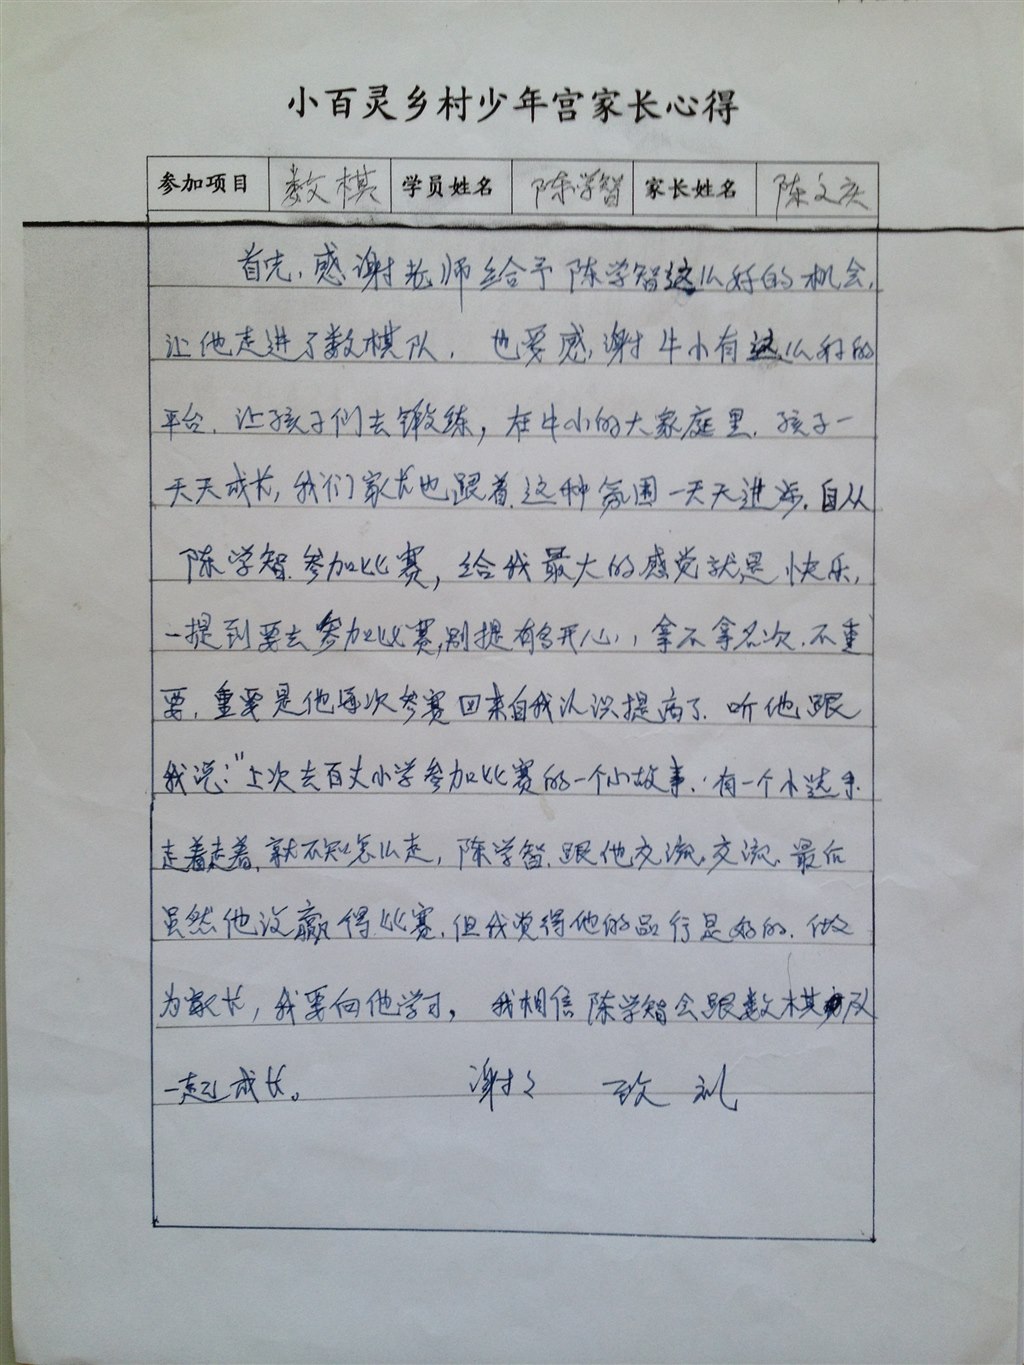 小百灵乡村少年宫家长心得
参加项目 数棋 学员姓名 陈学智 家长姓名 陈文庆
首先,感谢老师给予陈学智这么好的机会,
让他走进了数棋队. 也要感谢牛小有这么好的
平台.让孩子们去锻练,在牛小的大家庭里.孩子一
天天成长,我们家长也跟着这种氛围一天天进步.自从
陈学智参加比赛,给我最大的感觉就是快乐,
一提到要去参加比赛,别提有多开心,拿不拿名次.不重
要.重要是他每次参赛回来自我认识提高了.听他跟
我说:"上次去百丈小学参加比赛的一个小故事.有一个小选手
走着走着,就不知怎么走,陈学智.跟他交流交流.最后
虽然他没赢得比赛.但我觉得他的品行是好的.做
为家长,我要向他学习。我相信陈学智会跟数棋队
一起成长。 谢谢 致礼